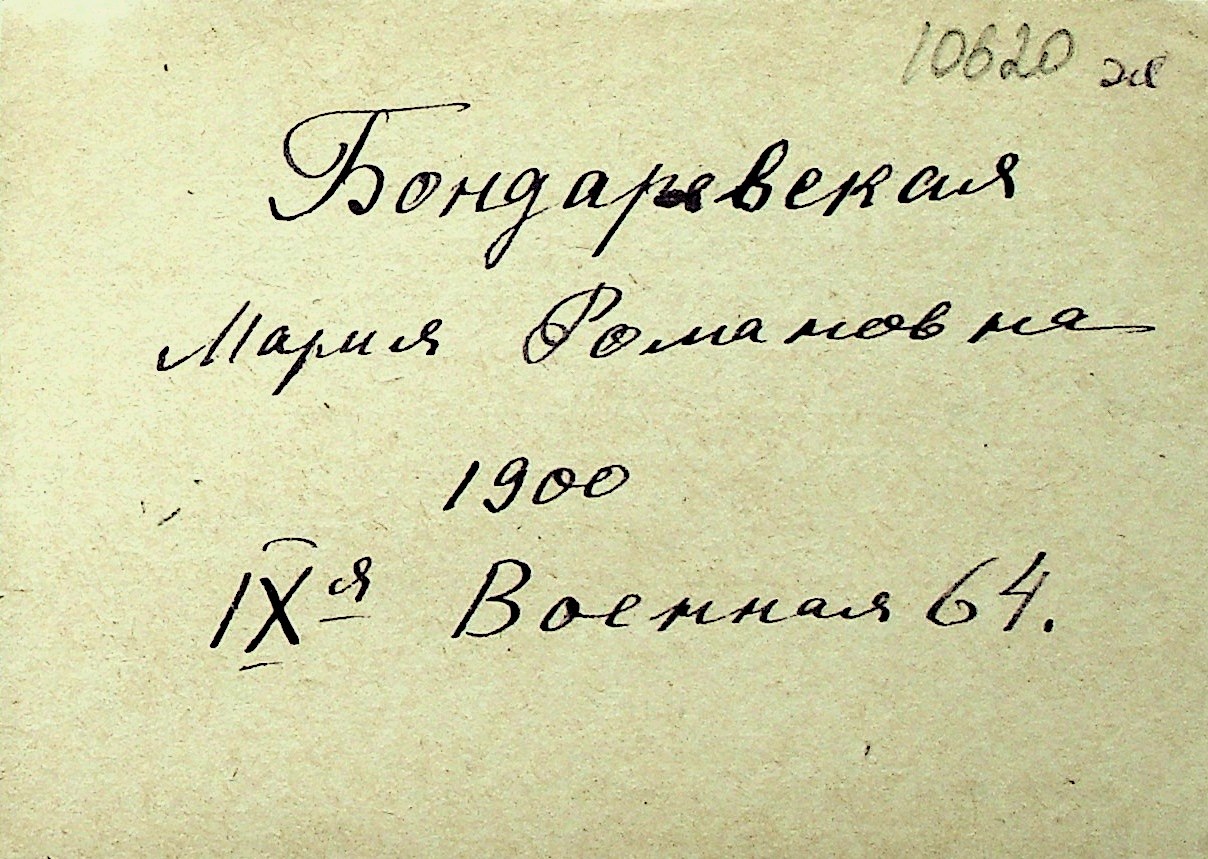 10620 эл
Бондаревская
Мария Романовна
1900
IXя Военная 64.